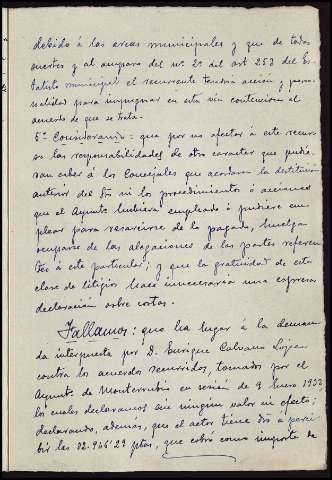 debido á las arcas municipales y que de todas
suertes y al amparo del nº 2º del art 253 del Es-
tatuto municipal el recurrente tendrá acción y perso-
nalidad para impugnar en esta vía contenciosa el
acuerdo de que se trata.
5º Considerando: que por no afectar á este recur-
so las responsabilidades de otro carácter que pudie-
san caber á los Concejales que acordaron la destitución
anterior del Dº ni los procedimientos ó acciones
que el Ayuntº hubiera empleado ó pudiere em-
plear para resarcirse de lo pagado, huelga
ocuparse de las alegaciones de las partes referen-
tes á este particular; y que la gratuidad de esta
clase de litigios hace innecesaria una expresa
declaración sobre costas.
Fallamos: que ha lugar á la deman-
da interpuesta por D. Enrique Calvano López
contra los acuerdos recurridos, tomados por el
Ayuntº de Monterrubio en sesión de 9 Enero 1932
los cuales declaramos sin ningún valor ni efecto;
declarando, además, que el actor tiene dº á perci-
bir las ptas, que cobró como importe de